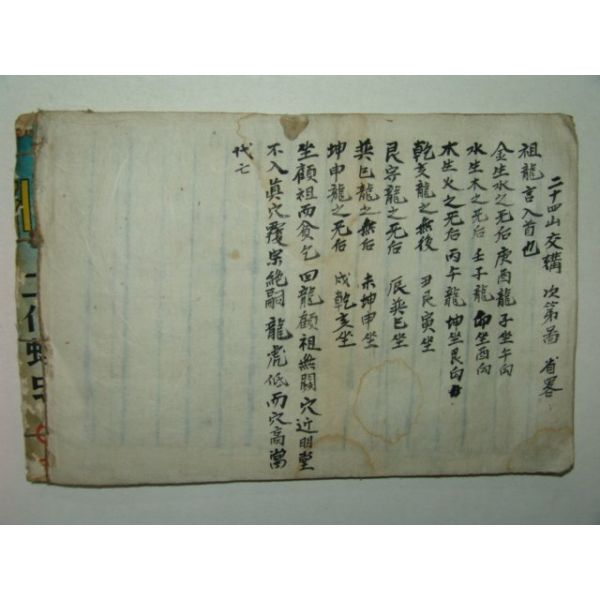 二十四山交媾 次第啚 省畧
祖龍言入首也
金生水之无后 庚酉龍 子坐午向
水生木之无后 壬子龍 卯坐酉向
木生火之无后 丙午龍 坤坐艮向
乾亥龍之無後 丑艮寅坐
艮字龍之无后 辰巽巳坐
巽巳龍之無后 未坤申坐
坤申龍之无后 戌乾亥坐
坐顧祖而貪乞 回龍顧祖無關 穴近明堂
不入眞穴殘宗絶嗣 龍虎低而穴高當
代亡